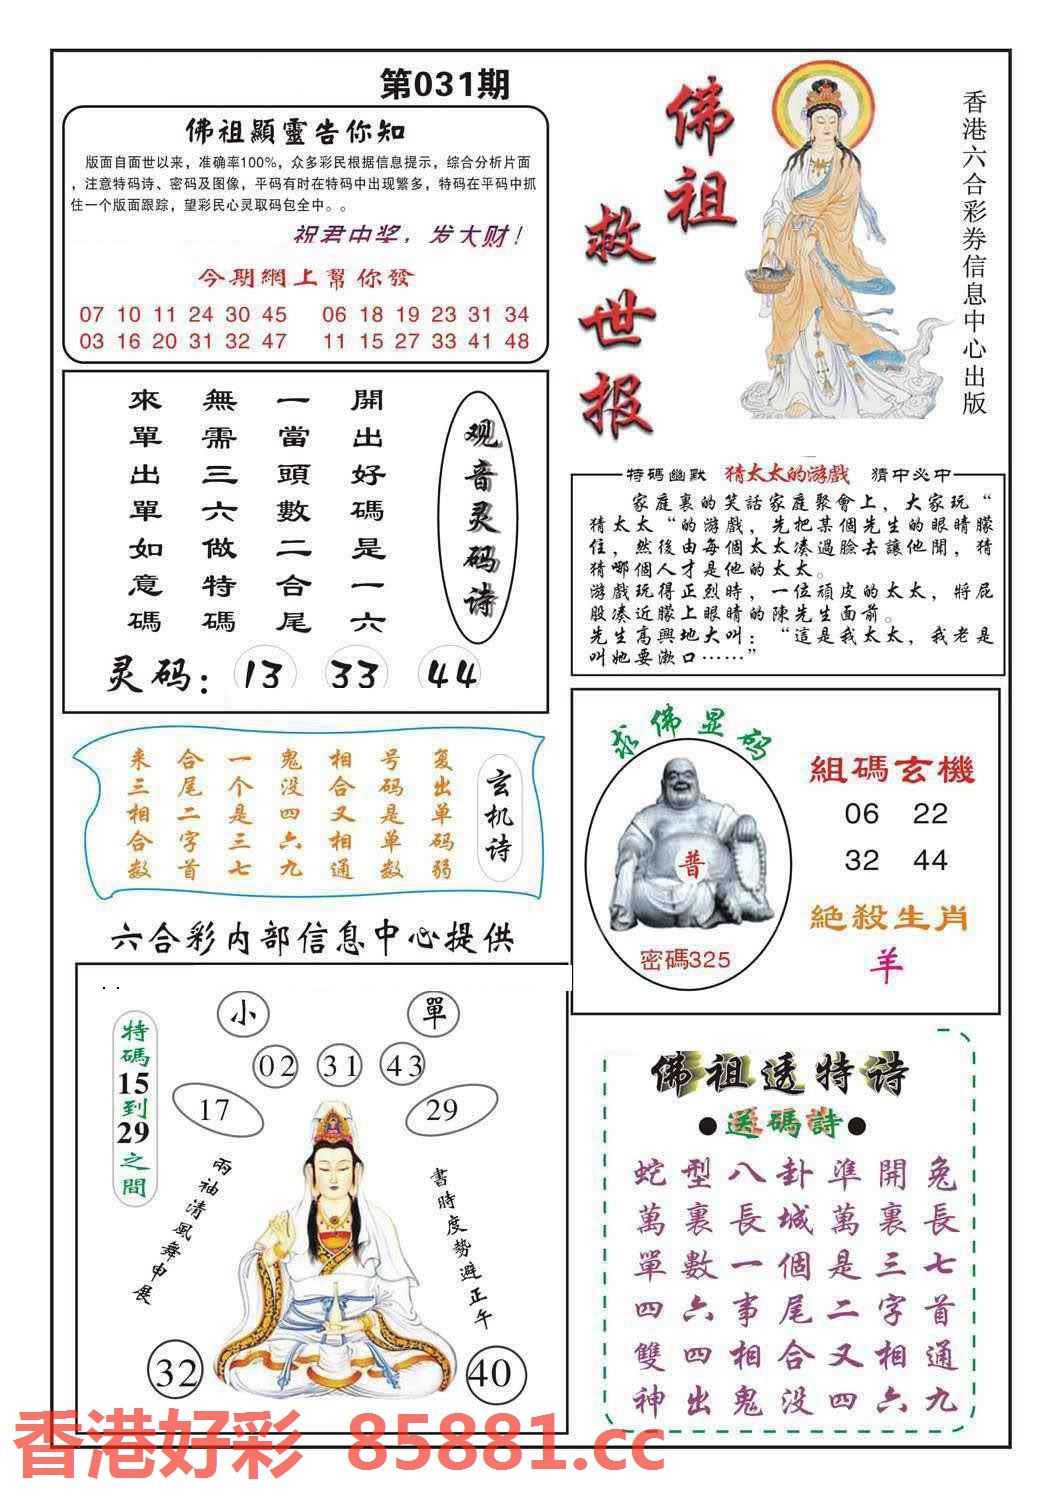 第031期
佛祖顯靈告你知
版面自面世以来，准确率100%，众多彩民根据信息提示，综合分析片面
，注意特码诗、密码及图像，平码有时在特码中出现繁多，特码在平码中抓
住一个版面跟踪，望彩民心灵取码包全中。。
祝君中奖，发大财！
今期網上幫你發
07 10 11 24 30 45 06 18 19 23 31 34
03 16 20 31 32 47 11 15 27 33 41 48
佛祖
救世报
香港六合彩券信息中心出版
观音灵码诗
開出好碼是一六
一當頭數二合尾
無需三六做特碼
來單出單如意碼
灵码：13 33 44
特碼幽默 猜太太的游戲 猜中必中
家庭裏的笑話家庭聚會上，大家玩“
猜太太“的游戲，先把某個先生的眼睛朦
住，然後由每個太太凑過臉去讓他聞，猜
猜哪個人才是他的太太。
游戲玩得正烈時，一位頑皮的太太，將屁
股凑近朦上眼睛的陳先生面前。
先生高興地大叫：“這是我太太，我老是
叫她要漱口······”
玄机诗
复出单码弱
号码是单数
相合又相通
鬼没四六九
一个是三七
合尾二字首
来三相合数
求佛显码
普
密碼325
組碼玄機
06 22
32 44
絕殺生肖
羊
六合彩内部信息中心提供
小 單
02 31 43
17 29
特碼15到29之間
兩袖清風舞申展
書時度勢避正午
32 40
佛祖透特诗
●送碼詩●
蛇型八卦準開兔
萬裏長城萬裏長
單數一個是三七
四六事尾二字首
雙四相合又相通
神出鬼没四六九
香港好彩 85881.cc